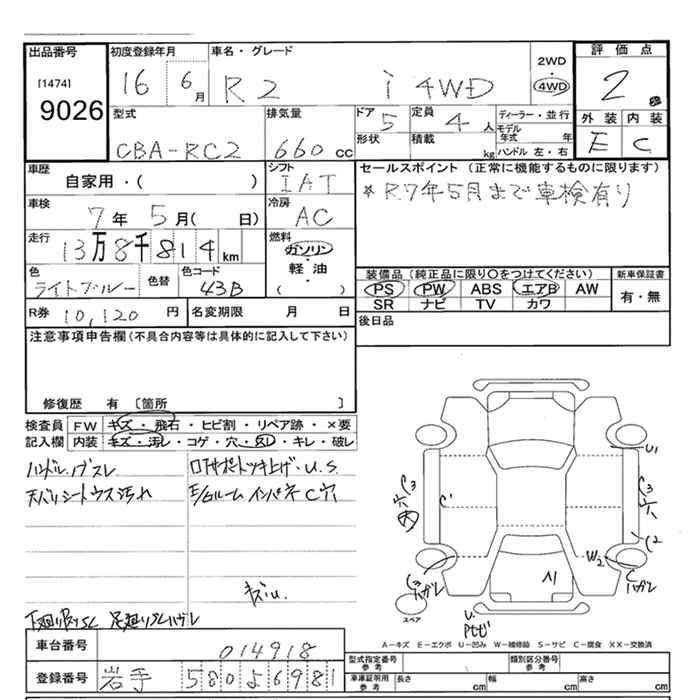 出品番号 初度登録年月 車名・グレード 2WD・4WD 評価点
[1474] 9026 16 6月 R2 i 4WD 2
型式 排気量 ドア 定員 ディーラー・並行 外装 内装
CBA-RC2 660cc 5 4人 モデル年式 年 E C
形状 積載 kg ハンドル 左・右
車歴 シフト セールスポイント (正常に機能するものに限ります)
自家用・( ) IAT *R.7年5月まで車検有り
車検 冷房
7年 5月( 日) AC
走行 燃料
13万8千814km ガソリン・軽油・( )
色 色替 色コード 装備品 (純正品に限り○をつけてください) 新車保証書
ライトブルー 43B PS PW ABS エアB AW 有・無
SR ナビ TV カワ
R券 10,120円 名変期限 月 日 後日品
注意事項申告欄(不具合内容等は具体的に記入して下さい)
修復歴 有 [箇所 ]
検査員 FW キズ・飛石・ヒビ割・リペア跡・×要
記入欄 内装 キズ・汚レ・コゲ・穴・スレ・キレ・破レ
ハンドル、ノブスレ ロアサポートツキ上ゲ・U.S
天バリシートウス汚れ E/Gルーム インパネ C穴
キズU.
下廻りサビSC 足廻りSCハガレ
U1
C3
穴
C3
穴
C'
C2
W2
C3
ハガレ
C
ハガレ
A1
U.
スペア
A-キズ E-エクボ U-凹み W-補修跡 S-サビ C-腐食 XX-交換済
車台番号 014918 型式指定番号 参考 類別区分番号 参考
登録番号 岩手 580 い 6981 車庫証明用 参考 長さ cm 幅 cm 高さ cm